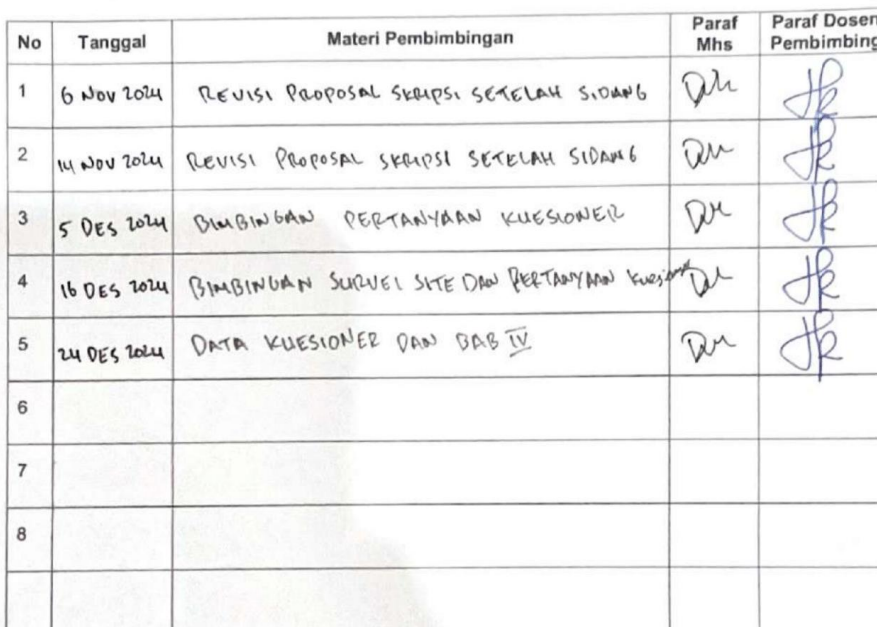 No Tanggal Materi Pembimbingan Paraf Mhs Paraf Dosen Pembimbing
1 6 NOV 2024 REVISI PROPOSAL SKRIPSI SETELAH SIDANG
2 14 NOV 2024 REVISI PROPOSAL SKRIPSI SETELAH SIDANG
3 5 DES 2024 BIMBINGAN PERTANYAAN KUESIONER
4 16 DES 2024 BIMBINGAN SURVEI SITE DAN PERTANYAAN Kuesioner
5 24 DES 2024 DATA KUESIONER DAN BAB IV
6
7
8